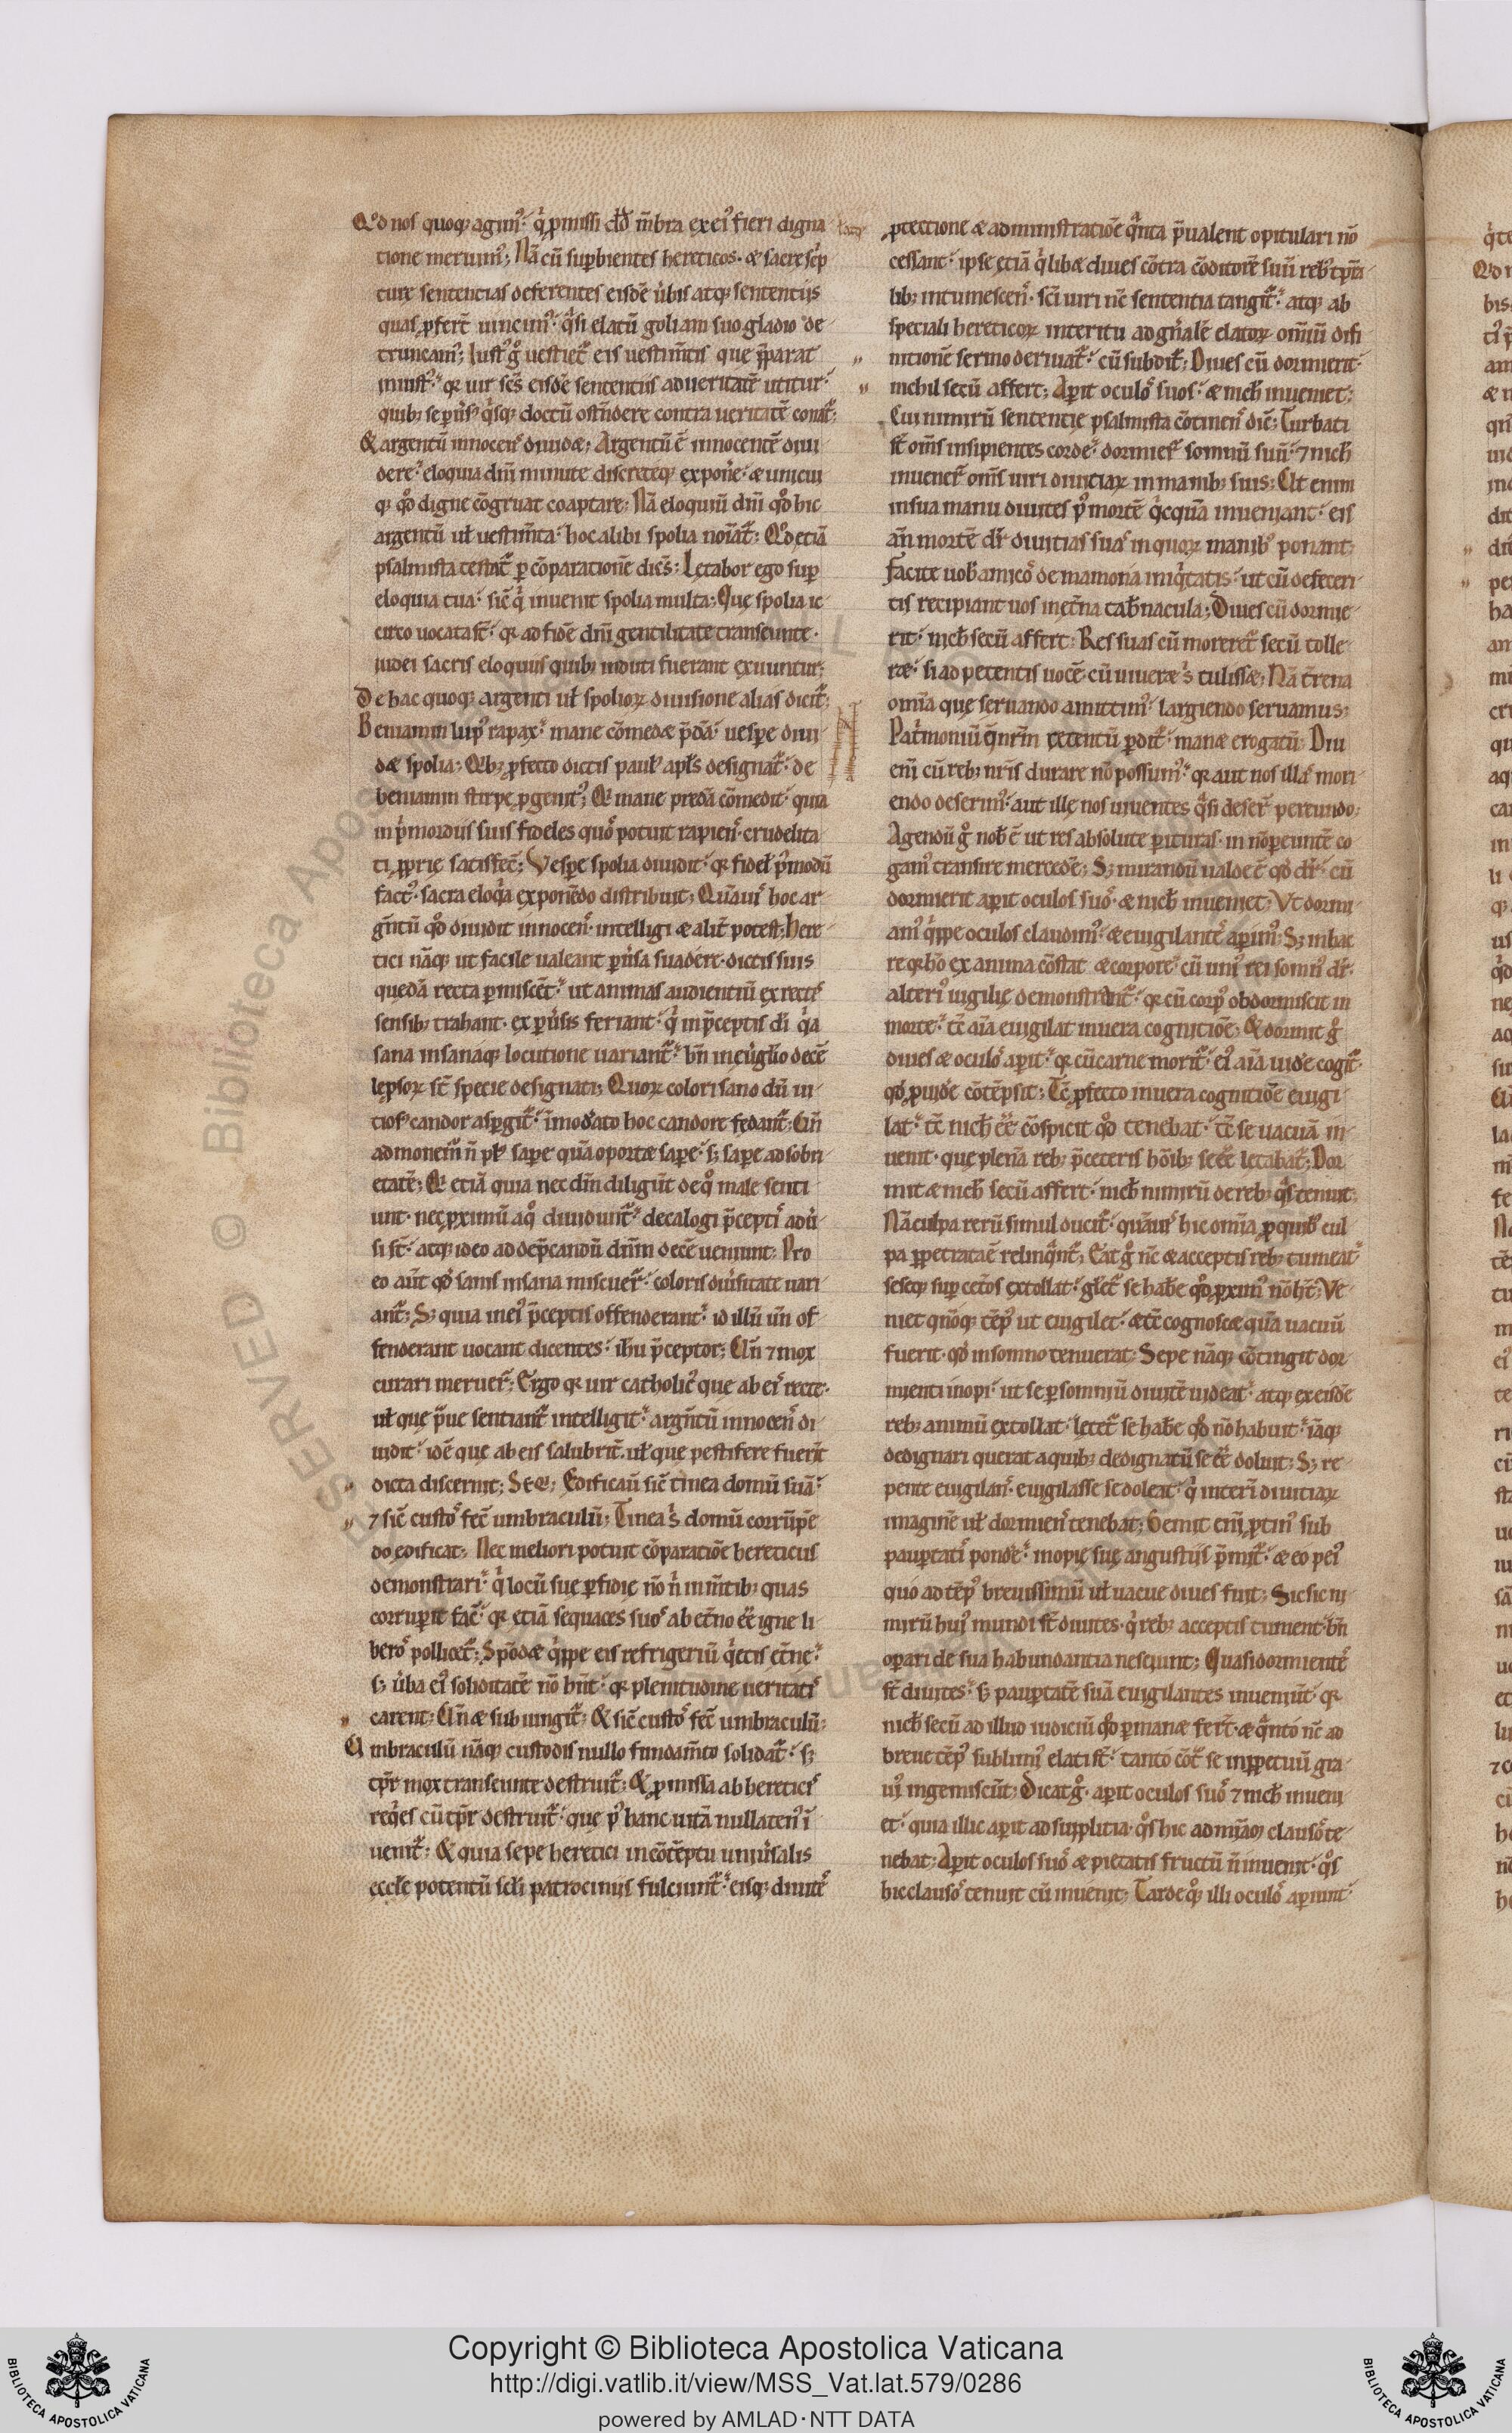 Qd̾ nos quoq; agim᷒· q̇ p̱missi dd̄ m̄bra ex ei᷒ fieri digna
tione merum᷒; Nā cū supbientes hereticos· & sacre sc̄p
ture sententias deferentes eisdē ūbis atq; sententiis
quas ꝓfert uincim᷒· q̇si elatū goliam suo gladio de
truncam᷒; Iust᷒ g̊ uestiet̄ eis uestim̄tis que p̄parat
iniust᷒· qr uir sc̄s eisdē sententiis ad ueritatē utitur·
quib; se puīs᷒ q̇sq; doctū ostn̄dere contra ueritatē conat̄;
& argentū innocens diuid&; Argentū ē innocentē diui
dere· eloquia dn̄i minute discreteq; expon̄e· & unicui
q; qd̾ digne cōgruat coaptare; Nā eloquiū dn̄i qd̾ hic
argentū ul̄ uestim̄ta· hoc alibi spolia noīat̄; Qd̾ etiā
psalmista testat̄ p cōparationē dic̄s; Letabor ego sup
eloquia tua· sic̄ q̇ inuenit spolia multa; Que spolia ic
circo uocata st̄· qr ad fidē dn̄i gentilitate transeunte·
iudei sacris eloquiis quib; induti fuerant exuuntur;
De hac quoq; argenti ul̄ spolioꝝ diuisione alias dicit̄;
Beniamin lup᷒ rapax· mane cōmed& p̄dā· uespe diui
d& spolia; Qb; ꝓfecto dictis paul᷒ apl̄s designat̄· de
beniamin stirpe ꝓgenit᷒; Qi mane predā cōmedit· quia
in p̄mordiis suis fideles quos potuit rapiens· crudelita
ti ꝓprie satisfec̄; Vespe spolia diuidit· qr fidel̄ p᷒modū
fact᷒· sacra eloq̇a exponēdo distribuit; Quāuis hoc ar
gn̄tū qd̾ diuidit innocens· intelligi & alit̄ potest; Here
tici nāq; ut facile ualeant puīsa suadere· dictis suis
quedā recta pmiscēt· ut animas audientiū ex rectis
sensib; trahant· ex puīsis feriant· q̇ in p̄ceptis dī q̇a
sana insanaq; locutione uariant̄· bn̄ in euglīo decē
leprsoꝝ st̄ specie designati; Quoꝝ colori sano dū ui
tios᷒ candor aspgit̄· īmodato hoc candore fedant̄; Un̄
ad monem̄ n̄ pl᷒ sapere quā oport& sapere· s; sapere ad sobri
etatē; Qi etiā quia nec dn̄m diligūt de q̊ male senti
unt· nec ꝓximū a q̊ diuidunt̄· decalogi p̄ceptis aduī
si st̄· atq; ideo ad dep̄candū dn̄m decē ueniunt; Pro
eo aūt qd̾ sanis insana miscuer̄· coloris diuīsitate uari
ant̄; S; quia in ei᷒ p̄ceptis offenderant· id illū un̄ of
fenderant uocant dicentes· ih̄u p̄ceptor; Un̄ ⁊ mox
curari meruer̄; Ergo qr uir catholic᷒ que ab eis recte·
ul̄ que p̄ue sentiant̄ intelligit· argn̄tū innocens di
uidit· idē que ab eis salubrit̄· ul̄ que pestifere fuer̄t
dicta discernit; Seq̄; Edificau᷒ sic̄ tinea domū suā·
⁊ sic̄ custos fec̄ umbraculū; Tinea s̄ domū corrūpē
do edificat; Nec meliori potuit cōparatiōe hereticus
demonstrari· q̇ locū sue ꝑfidie nō n̄ in m̄tib; quas
corruperit fac̄· qr etiā sequaces suos ab et̄no eē igne li
beros pollicet̄; Spōd& q̇ppe eis refrigeriū q̇etis et̄ne·
s; ūba ei᷒ soliditatē nō hn̄t· qr plenitudine ueritatis
carent; Un̄ & subiungit̄; & sic̄ custos fec̄ umbraculū;
Umbraculū nāq; custodis nullo fundam̄to solidat̄· s;
tp̄r mox transeunte destruit̄; & ꝓmissa ab hereticis
req̇es cū tp̄r destruit̄· que p᷒ hanc uitā nullaten᷒ ī
uenit̄; & quia sepe heretici in cōtēptu uniūsalis
eccl̄e potentū scl̄i patrociniis fulciunt̄· eisq; diuites
ꝓtectione & administratiōe q̇nta p̄ualent opitulari nō
cessant· ipse etiā q̇lib& diues cōtra cōditorē suū reb᷒ tp̄ra
lib; intumescens· sc̄i uiri nc̄ sententia tangit̄· atq; ab
speciali hereticoꝝ interitu ad gn̄alē elatoꝝ omniū difi
nitionē sermo deriuat̄· cū subdit̄; Diues cū dormierit·
nichil secū affert; Aperit oculos suos· & nich̄ inueniet;
Cui nimirū sententie psalmista cōtinens dic̄; Turbati
st̄ om̄s insipientes corde· dormier̄ somnū suū· ⁊ nich̄
inuener̄ om̄s uiri diuitiaꝝ in manib; suis; Ut enim
in sua manu diuites p᷒ mortē q̇cquā inueniant· eis
an̄ mortē dr̄ diuitias suas in quoꝝ manib᷒ ponant;
Facite uob̄ amicos de mamona iniq̇tatis· ut cū defeceri
tis recipiant uos in et̄na tab̄nacula; Diues cū dormie
rit· nich̄ secū affert; Res suas cū moreret̄ secū tolle
r&· si ad petentis uocē cū uiuer& s̄ tuliss&; Nā t̄rena
omīa que seruando amittim᷒· largiendo seruamus;
Pat̄moniū q̄nr̄m retentū pdit̄· man& erogatū; Diu
enī cū reb; nr̄is durare nō possum᷒· qr aut nos illas mori
endo deserim᷒· aut ille nos uiuentes q̇si deser̄t pereundo;
Agendū g̊ nob̄ ē ut res absolute perituras· in nōpeuntē co
gam᷒ transire mercedē; S; mirandū ualde ē qd̾ dr̄· cū
dormierit aperit oculos suos· & nich̄ inueniet; Vt dormi
am᷒ q̇ppe oculos claudim᷒· & euigilantes aperim᷒; S; in hac
re qr hō ex anima cōstat & corpore· cū uni᷒ rei somn᷒ dr̄·
alteri᷒ uigilie demonstrant̄· qr cū corp᷒ obdormiscit in
morte· tc̄ aīa euigilat in uera cognitiōe; & dormit g̊
diues & oculos aperit· qr cū carne morit̄· ei᷒ aīa uidere cogit̄·
qd̾ ꝓuidere cōtēpsit; Tc̄ ꝓfecto in uera cognitiōe euigi
lat· tc̄ nich̄ eē cōspicit qd̾ tenebat· tc̄ se uacuā in
uenit· que plenā reb; p̄ ceteris hōib; se eē letabat̄; Dor
mit & nich̄ secū affert· nich̄ nimirū de reb; q̇s tenuit;
Nā culpa rerū simul ducit̄· quāuis hic omīa ꝓ quib᷒ cul
pa ꝑpetrata ē relinq̇nt̄; Eat g̊ nc̄ & acceptis reb; tumeat·
seseq; sup cet̄os extollat· glet̄ se habere qd̾ ꝓxim᷒ nō h̄t; Ve
niet qn̄oq; tēp᷒ ut euigilet· & tc̄ cognosc& quā uacuū
fuerit· qd̾ in somno tenuerat; Sepe nāq; cōtingit dor
mienti inopi· ut se p somniū diuitē uideat· atq; ex eisdē
reb; animū extollat· letet̄ se habere qd̾ nō habuit· iāq;
dedignari querat a quib; dedignatū se eē doluit; S; re
pente euigilans· euigilasse se doleat· q̇ interī diuitiaꝝ
imaginē ul̄ dormiens tenebat; Gemit enī ꝓtin᷒ sub
pauptatis pondere· inopie sue angustiis p̄mit̄· & eo pei᷒
quo ad tēp᷒ breuissimū ul̄ uacue diues fuit; Sic sic ni
mirū hui᷒ mundi st̄ diuites· q̇ reb; acceptis tument· bn̄
operari de sua habundantia nesciunt; Quasi dormientes
st̄ diuites· s; pauptatē suā euigilantes inueniūt· qr
nich̄ secū ad illud iudiciū qd̾ pman& fer̄t· & q̇nto nc̄ ad
breue tēp᷒ sublimi᷒ elati st̄· tanto cōt̄ se in ꝑpetuū gra
ui᷒ ingemiscūt; Dicat g̊· aperit oculos suos ⁊ nich̄ inueni
et· quia illic aperit ad supplitia· q̊s hic ad mīā clausos te
nebat; Aperit oculos suos & pietatis fructū n̄ inuenit· q̊s
hic clausos tenuit cū inuenit; Tarde q̊q; illi oculos aperiunt·
Copyright © Biblioteca Apostolica Vaticana
http://digi.vatlib.it/view/MSS_Vat.lat.579/0286
powered by AMLAD · NTT DATA
BIBLIOTECA APOSTOLICA VATICANA
BIBLIOTECA APOSTOLICA VATICANA